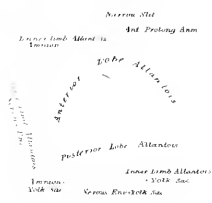 Narrow Slit
Ant Prolong Amn
Inner limb Allantois
Amnion
Lobe
Allantois
Anterior
Posterior Lobe Allantois
Inner Limb Allantois
+ Yolk Sac
Amnion-
Yolk Sac
Serous Env-Yolk Sac